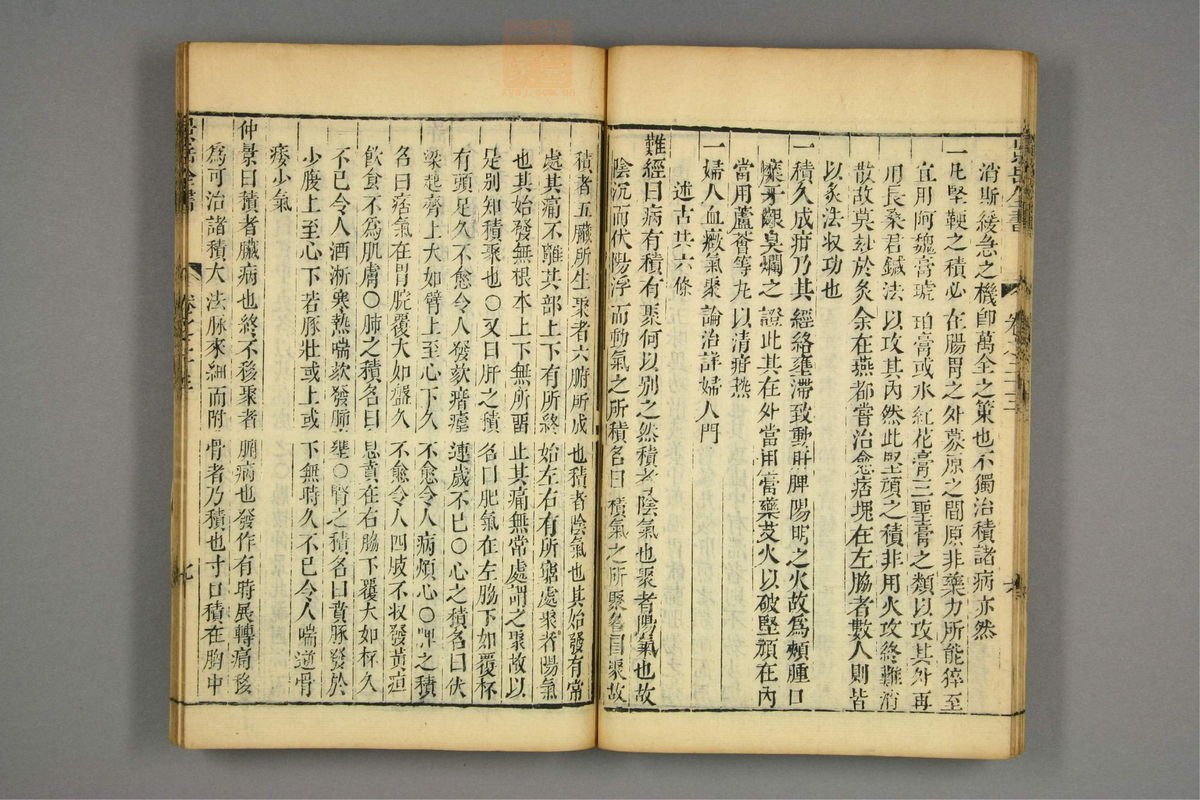 消斯緩急之機卽萬全之策也不獨治積諸病亦然
一凡堅鞕之積必在腸胃之外募原之間原非藥力所能猝至
宜用阿魏膏琥珀膏或水紅花膏三聖膏之類以攻其外再
用長桑君鍼法以攻其內然此堅頑之積非用火攻終難消
散故莫玅於灸余在燕都嘗治愈痞塊在左脇者數人則皆
以灸法收功也
一積久成疳乃其經絡壅滯致動肝脾陽明之火故爲頰腫口
糜牙齦臭爛之證此其在外當用膏藥艾火以破堅頑在內
當用蘆薈等丸以清疳𤍠
一婦人血癥氣聚論治詳婦人門
述古共六條
難經曰病有積有聚何以別之然積者陰氣也聚者陽氣也故
陰沉而伏陽浮而動氣之所積名曰積氣之所聚名曰聚故
積者五臟所生聚者六腑所成也積者陰氣也其始發有常
處其痛不離其部上下有所終始左右有所窮處聚者陽氣
也其始發無根本上下無所畱止其痛無常處謂之聚故以
是別知積聚也○又曰肝之積名曰肥氣在左脇下如覆杯
有頭足久不愈令人發欬瘖瘧連歲不已○心之積名曰伏
梁起齊上大如臂上至心下久不愈令人病煩心○脾之積
名曰痞氣在胃脘覆大如盤久不愈令人四肢不收發黃疸
飲食不爲肌膚○肺之積名曰息賁在右脇下覆大如杯久
不已令人洒淅寒熱喘欬發肺壅○腎之積名曰賁豚發於
少腹上至心下若豚壯或上或下無時久不已令人喘逆骨
痿少氣
仲景曰積者臟病也終不移聚者腑病也發作有時展轉痛移
爲可治諸積大法脉來細而附骨者乃積也寸口積在胸中